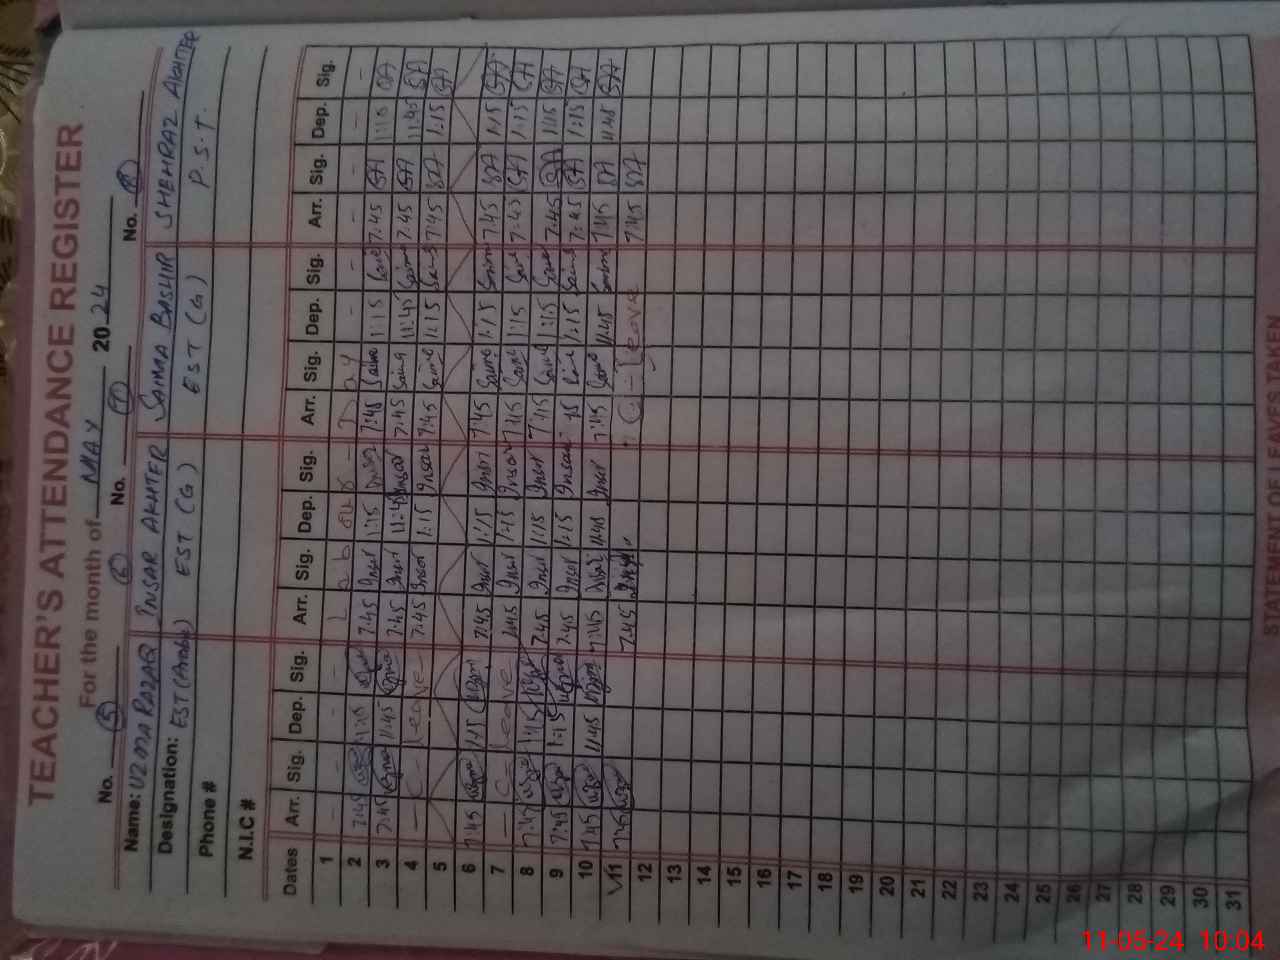 TEACHER'S ATTENDANCE REGISTER
For the month of MAY 2024
No. 5 No. 6 No. 7 No. 8
Name: UZMA RAZAQ INSAR AKHTER SAIMA BASHIR SHEHRAZ AKHTER
Designation: EST (Arabic) EST (G) EST (G) P.S.T.
Phone #
N.I.C #
Dates Arr. Sig. Dep. Sig. Arr. Sig. Dep. Sig. Arr. Sig. Dep. Sig. Arr. Sig. Dep. Sig.
1 - - - - L a b ou r - D a y - - - - -
2 7:45 Uzma 1:15 Uzma 7:45 Insar 1:15 Insar 7:45 Saima 1:15 Saima 7:45 SA 1:15 SA
3 7:45 Uzma 11:45 Uzma 7:45 Insar 11:45 Insar 7:45 Saima 11:45 Saima 7:45 SA 11:45 SA
4 - C - Leave - 7:45 Insar 1:15 Insar 7:45 Saima 1:15 Saima 7:45 SA 1:15 SA
5
6 7:45 Uzma 1:15 Uzma 7:45 Insar 1:15 Insar 7:45 Saima 1:15 Saima 7:45 SA 1:15 SA
7 - C - Leave 7:45 Insar 1:15 Insar 7:45 Saima 1:15 Saima 7:45 SA 1:15 SA
8 7:45 Uzma 1:15 Uzma 7:45 Insar 1:15 Insar 7:45 Saima 1:15 Saima 7:45 SA 1:15 SA
9 7:45 Uzma 1:15 Uzma 7:45 Insar 1:15 Insar Saima 1:15 Saima 7:45 SA 1:15 SA
10 7:45 Uzma 11:45 Uzma 7:45 Insar 11:45 Insar 7:45 Saima 11:45 Saima 7:45 SA 11:45 SA
11 7:45 Uzma 7:45 C - Leave 7:45 SA
12
13
14
15
16
17
18
19
20
21
22
23
24
25
26
27
28
29
30
31
STATEMENT OF LEAVES TAKEN
11-05-24 10:04